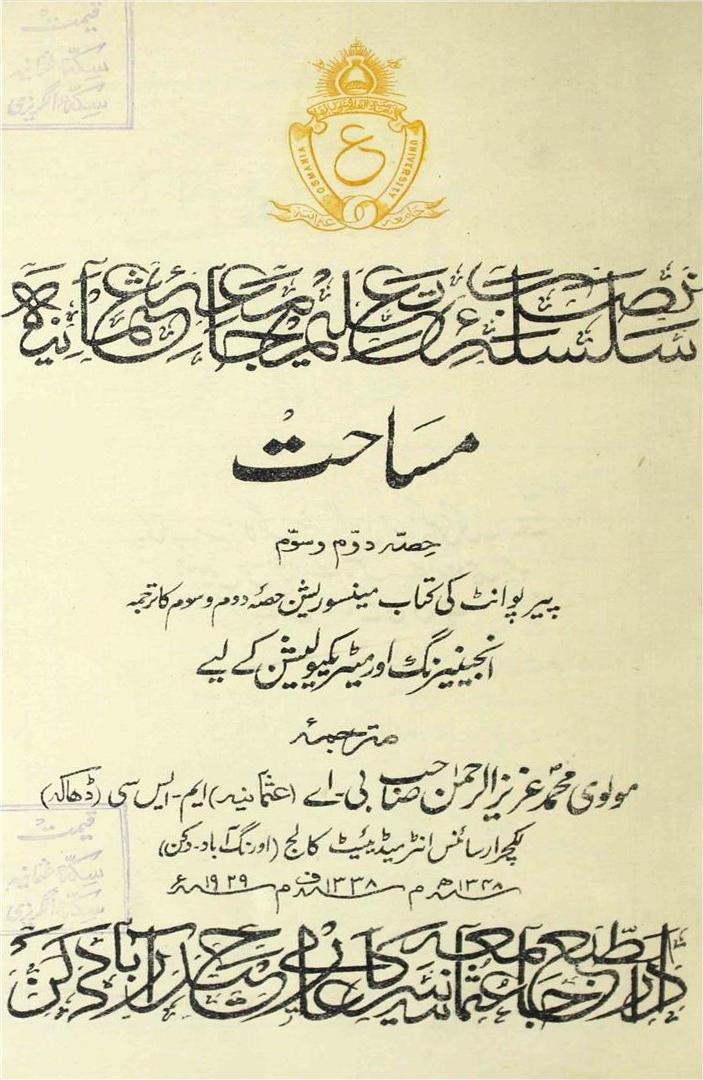 قیمت
سکۂ عثمانیہ
سکۂ انگریزی
OSMANIA UNIVERSITY
جامعہ عثمانیہ
سلسلۂ نصاب تعلیم جامعۂ عثمانیہ
مساحت
حصہ دوّم وسوّم
پیرپوانٹ کی کتاب مینسوریشن حصۂ دوم و سوم کا ترجمہ
انجینیرنگ اور میٹریکیولیشن کے لیے
مترجمۂ
مولوی محمد عزیز الرحمٰن صاحب بی-اے (عثمانیہ) ایم-ایس سی (ڈھاکہ)
لکچرار سائنس انٹرمیڈیئیٹ کالج (اورنگ آباد-دکن)
۱۳۴۸ھ م ۱۳۳۸ف م ۱۹۲۹ء
قیمت
سکۂ عثمانیہ
سکۂ انگریزی
دار الطبع جامعہ عثمانیہ سرکار عالی حیدرآباد دکن